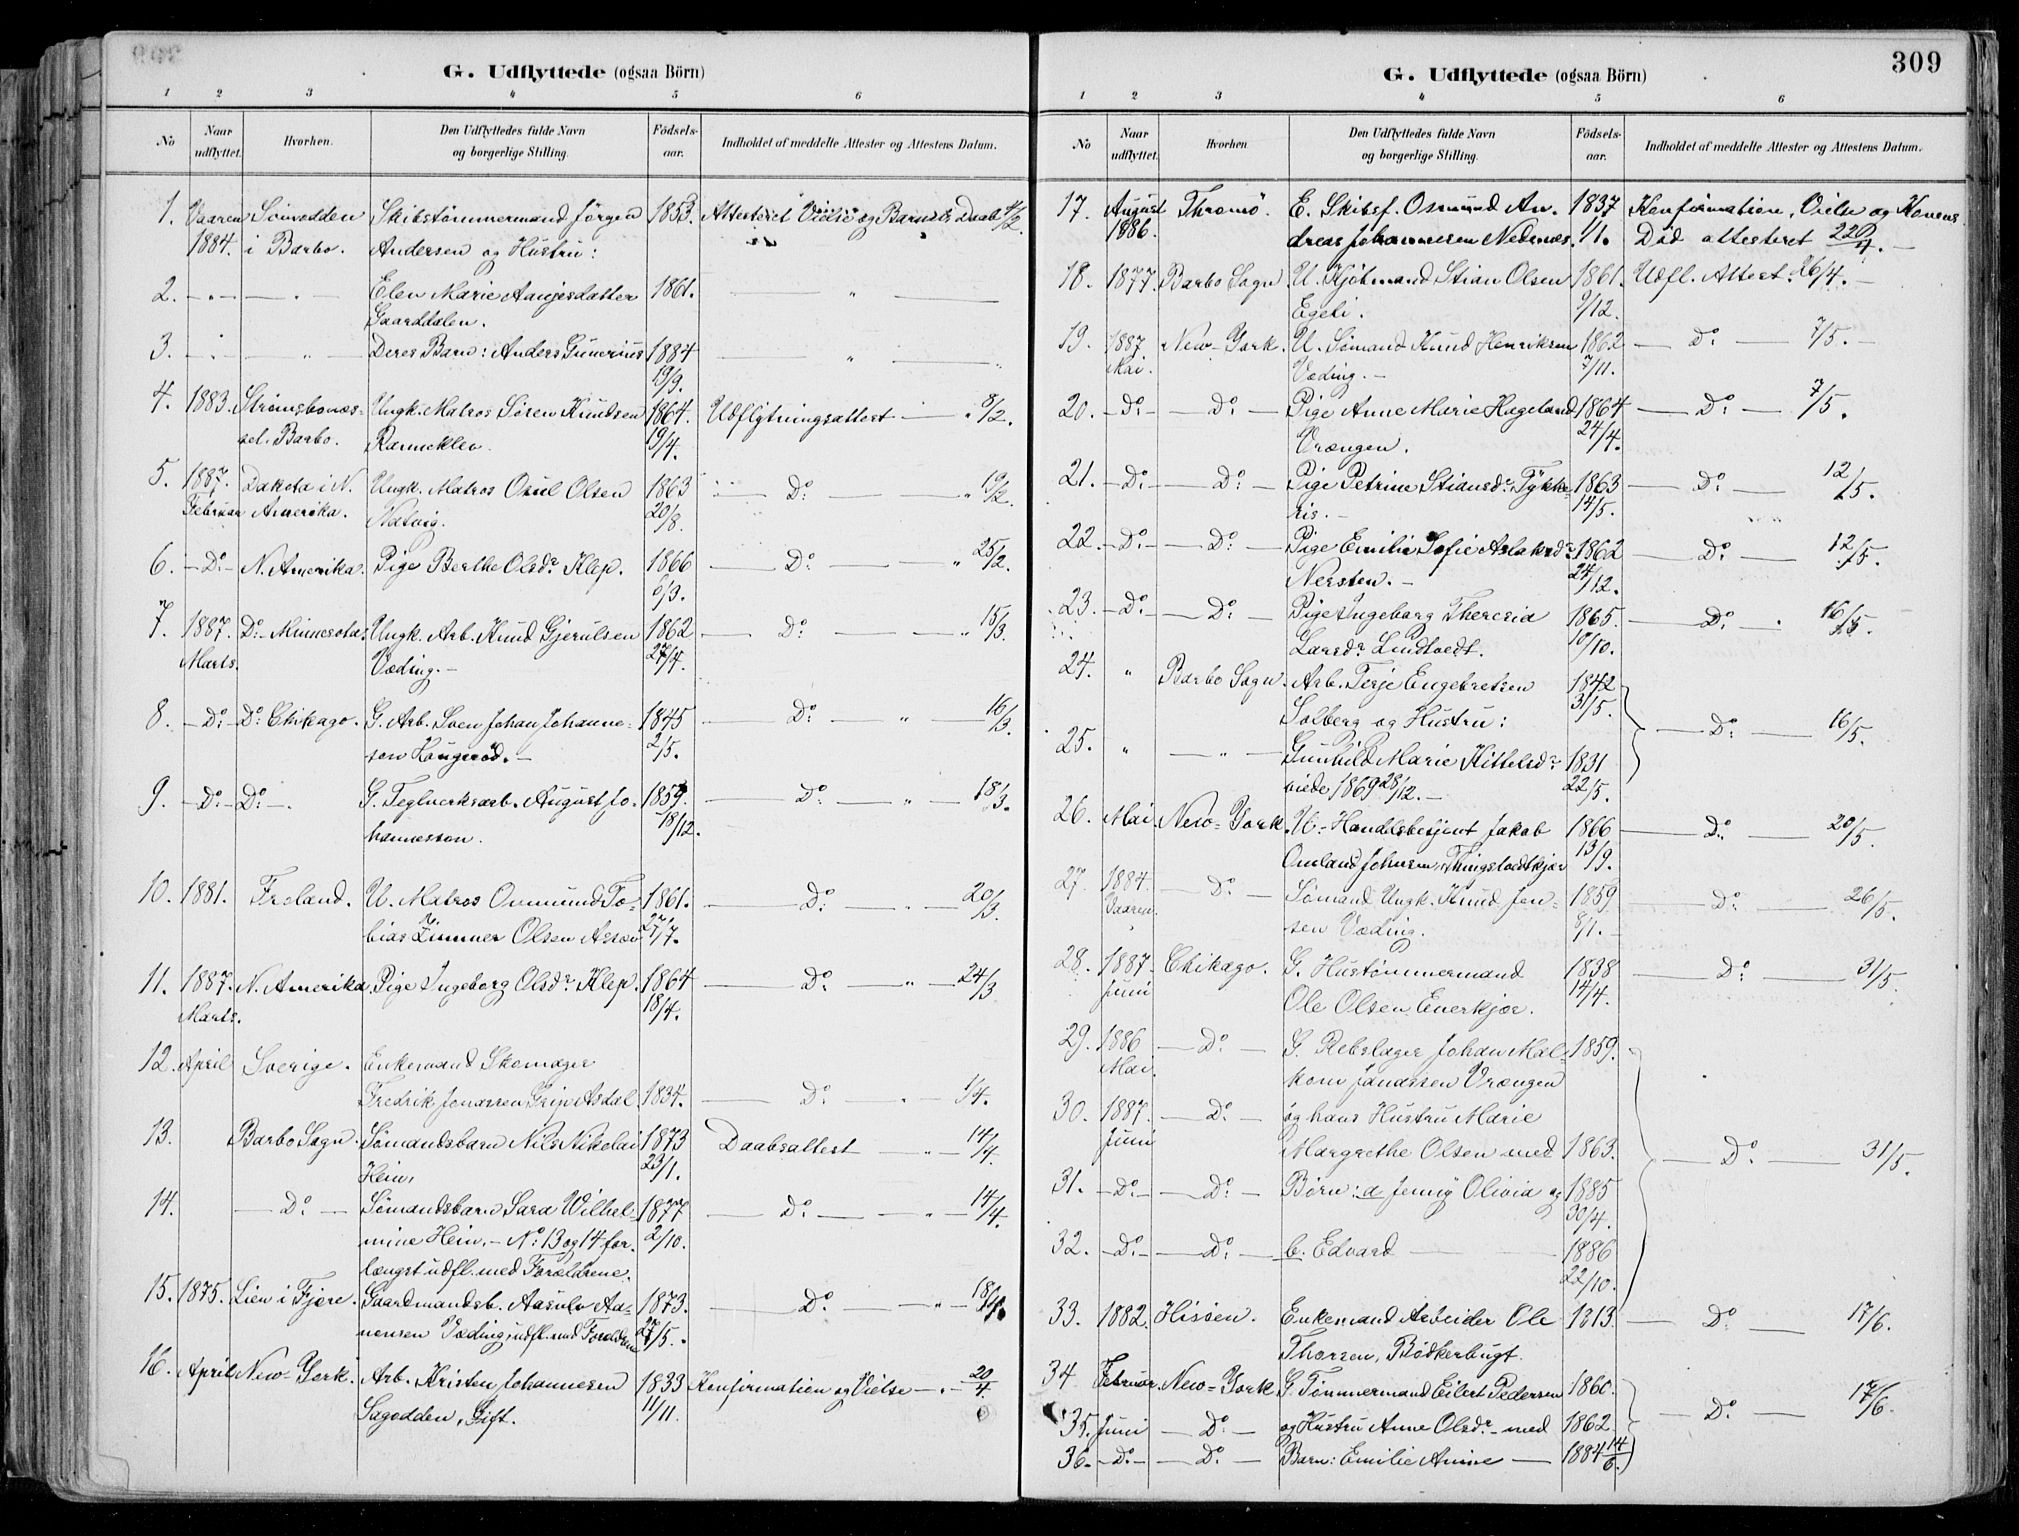 G. Udflyttede (ogsaa Börn)
1 2 3 4 5 6
No Naar udflyttet. Hvorhen. Den Udflyttedes fulde Navn og borgerlige Stilling. Födsels-aar. Indholdet af meddelte Attester og Attestens Datum.
1. Vaaren Sömodden Skibstömmermand Jörgen 1853. Attesteret Vielse og Barnets Daab 4/2.
1884. i Barbo. Andersen og Hustru:
2. -"- — " — Elen Marie Aanjesdatter 1861. — " —
Gaarddalen.
3. " " Deres Barn: Anders Gunerius 1884 " "
19/9.
4. 1883. Strömsbones- Ungk. Matros Sören Knudsen 1864. Udflytningsattest — " 8/2.
sel. Barbo. Ranneklev. 19/4.
5. 1887. Dakota i N. Ungk. Matros Osul Olsen 1863 — Do: — " 19/2.
Februar Amerika. Natvig. 20/8.
6. — Do — N. Amerika. Pige Berthe Olsdr. Klep. 1866 — Do: — " 25/2.
6/3.
7. 1887. Do. Minnesota. Ungk. Arb. Knud Gjerulsen 1862 — Do: — " 15/3.
Marts. Væding. — 27/4.
8. — Do: — Do: Chikago. G. Arb. Sven Johan Johanne- 1845 — Do: — " — 16/3.
sen Haugeröd. — 2/5.
9. — Do: — Do: — . G. Teglverksarb. August Jo- 1859. — Do: — " — 18/3.
hannesson. 18/12.
10. 1881. Froland. U. Matros Osmund To- 1861. — Do: — 20/3.
bias Zimmer Olsen Assev 27/7.
11. 1887. N. Amerika. Pige Ingeborg Olsdr. Klep. 1864 — Do: — " — 24/3
Marts. 18/4.
12. April Sverige. Enkemand Skomager
Fredrik Jonassen Grip Asdal. 1834. — Do: — " — 1/4.
13. Barbo Sogn. Sømandsbarn Nils Nikolai 1873 Daabsattest — " — 14/4.
Hein. 23/1.
14. — Do: — Sømandsbarn Sara Wilhel- 1877 — Do: — " — 14/4.
mine Hein. — No: 13 og 14 for- 2/10.
længst udfl. med Forældrene.
15. 1875. Lien i Fjære. Gaardmandsb. Aasulv Aa- 1873. — Do: — " — 18/4.
nonsen Væding, udfl. med Forældrene 27/5.
16. April New-York. Arb. Kristen Johannesen 1833 Konfirmation og Vielse — " — 20/4.
Sagodden, Gift. 11/11.
G. Udflyttede (ogsaa Börn) 309
1 2 3 4 5 6
No Naar udflyttet. Hvorhen Den Udflyttedes fulde Navn og borgerlige Stilling. Födsels-aar. Indholdet af meddelte Attester og Attestens Datum.
17. August Thromö. E. Skibsf. Osmund An- 1837 Konfirmation, Vielse og Konens
1886. dreas Johannesen Nednæs. 1/1. Död attesteret 22/4. —
18. 1877. Barbo Sogn U. Kjöbmand Stian Olsen 1861. Udfl. Attest. 26/4. —
Egeli. 9/12.
19. 1887. New-York. U. Sømand Knud Henriksen 1862 — Do: — 7/5. —
Mai. Væding. — 7/11.
20. — Do: — — Do: — Pige Anne Marie Hageland 1864 — Do: — 7/5.
Vrængen. 24/4.
21. — Do: — — Do: — Pige Petrine Stiansdr. Tykke- 1863 — Do: — 12/5.
ris. — 14/5.
22. — Do: — — Do: — Pige Emilie Sofie Aslaksdr. 1862 — Do: — 12/5.
Nersten. — 24/12.
23. — Do: — — Do: — Pige Ingeborg Theresia 1865. — Do: — 16/5.
Larsdr. Lindtvedt. 10/10.
24. " Barbo Sogn. Arb. Terje Engebretsen 1842
Solberg og Hustru: 31/5. — Do: — 16/5.
25. " — " — Gunhild Marie Kittelsdr. 1831
viede 1869 28/12. — 22/5.
26. Mai New-York. U. Handelsbetjent Jakob 1866 — Do: — 20/5.
Omland Johnsen, Thingstvedtkjær 13/9.
27. 1884. — Do: — Sømand Ungk. Knud Jen- 1859 — Do: — 26/5.
Vaaren. sen Væding. 8/1. —
28. 1887. Chikago. G. Hustömmermand 1838 — Do: — 31/5.
Juni Ole Olsen Enerkjær. 14/4.
29. 1886 — Do: — G. Rebslager Johan Mal- 1859.
Mai. kom Jonassen Vrængen
30. 1887. — Do: — og hans Hustru Marie
Juni Margrethe Olsen med 1863. — Do: — 31/5.
31. — Do: — — Do: — Børn: a Jenny Olivia og 1885
30/4.
32. — Do: — — Do: — b. Edvard — 1886
22/10.
33. 1882. Hisöen. Enkemand Arbeider Ole 1813. — Do: — 17/6.
Thorsen, Bödkerbugt.
34 Februar. New-York G. Tømmermand Eilert Pedersen 1860. — Do: — 17/6.
35. Juni — Do: — og Hustru Anne Olsdr. med 1862.
36. — Do: — — Do: — Barn: Emilie Amine — 1884 14/6.